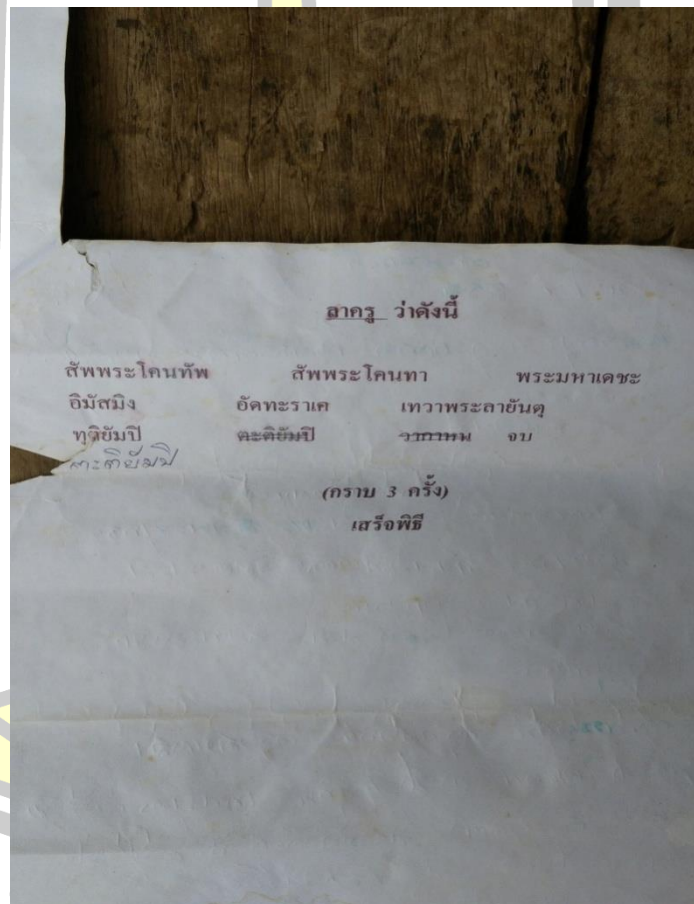 ลาครู ว่าดังนี้
สัพพระโคนทัพ สัพพระโคนทา พระมหาเดชะ
อิมัสมิง อัดทะราเค เทวาพระลายันตุ
ทุติยัมปี ตะติยัมปี วากาหน จบ
ตะติยัมปี
(กราบ 3 ครั้ง)
เสร็จพิธี